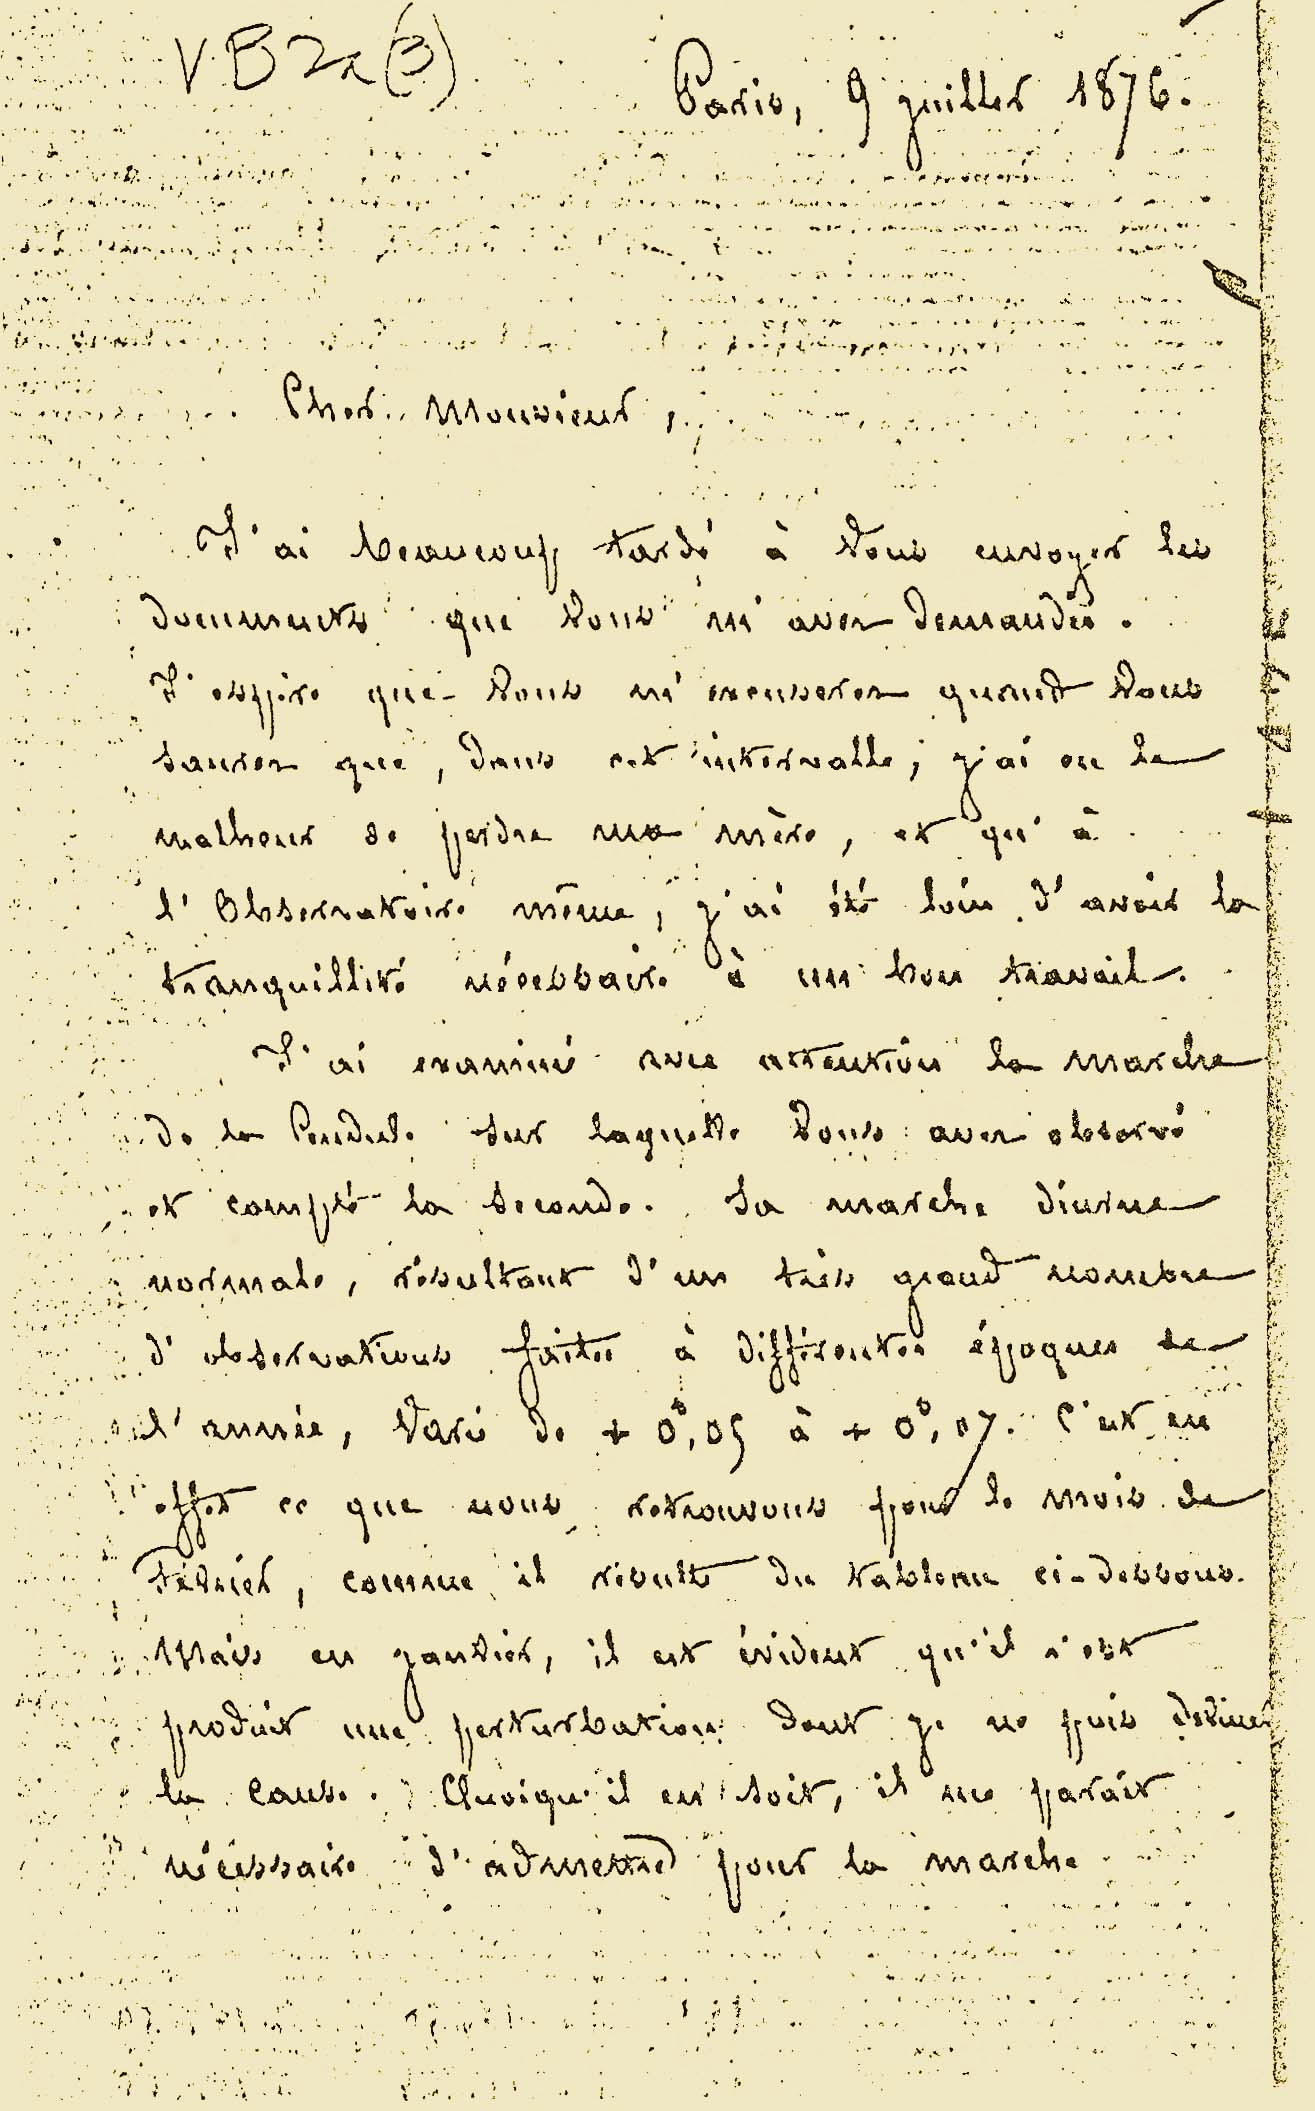 V.B2a(3)
Paris, 9 juillet 1876.
Cher Monsieur,
J'ai beaucoup tardé à Vous envoyer les
documents que Vous m'avez demandés.
J'espère que Vous m'excuserez quand Vous
saurez que, dans cet intervalle, j'ai eu le
malheur de perdre ma mère, et qu'à
l'Observatoire même, j'ai été loin d'avoir la
tranquillité nécessaire à un bon travail.
J'ai examiné avec attention la marche
de la Pendule sur laquelle Vous avez observé
et compté la seconde. Sa marche diurne
normale, résultant d'un très grand nombre
d'observations faites à différentes époques de
l'année, Varie de + 0ˢ,05 à + 0ˢ,07. C'est en
effet ce que nous retrouvons pour le mois de
Février, comme il résulte du tableau ci-dessous.
Mais en janvier, il est évident qu'il s'est
produit une perturbation dont je ne puis deviner
la cause. Quoiqu'il en soit, il me paraît
nécessaire d'admettre pour la marche